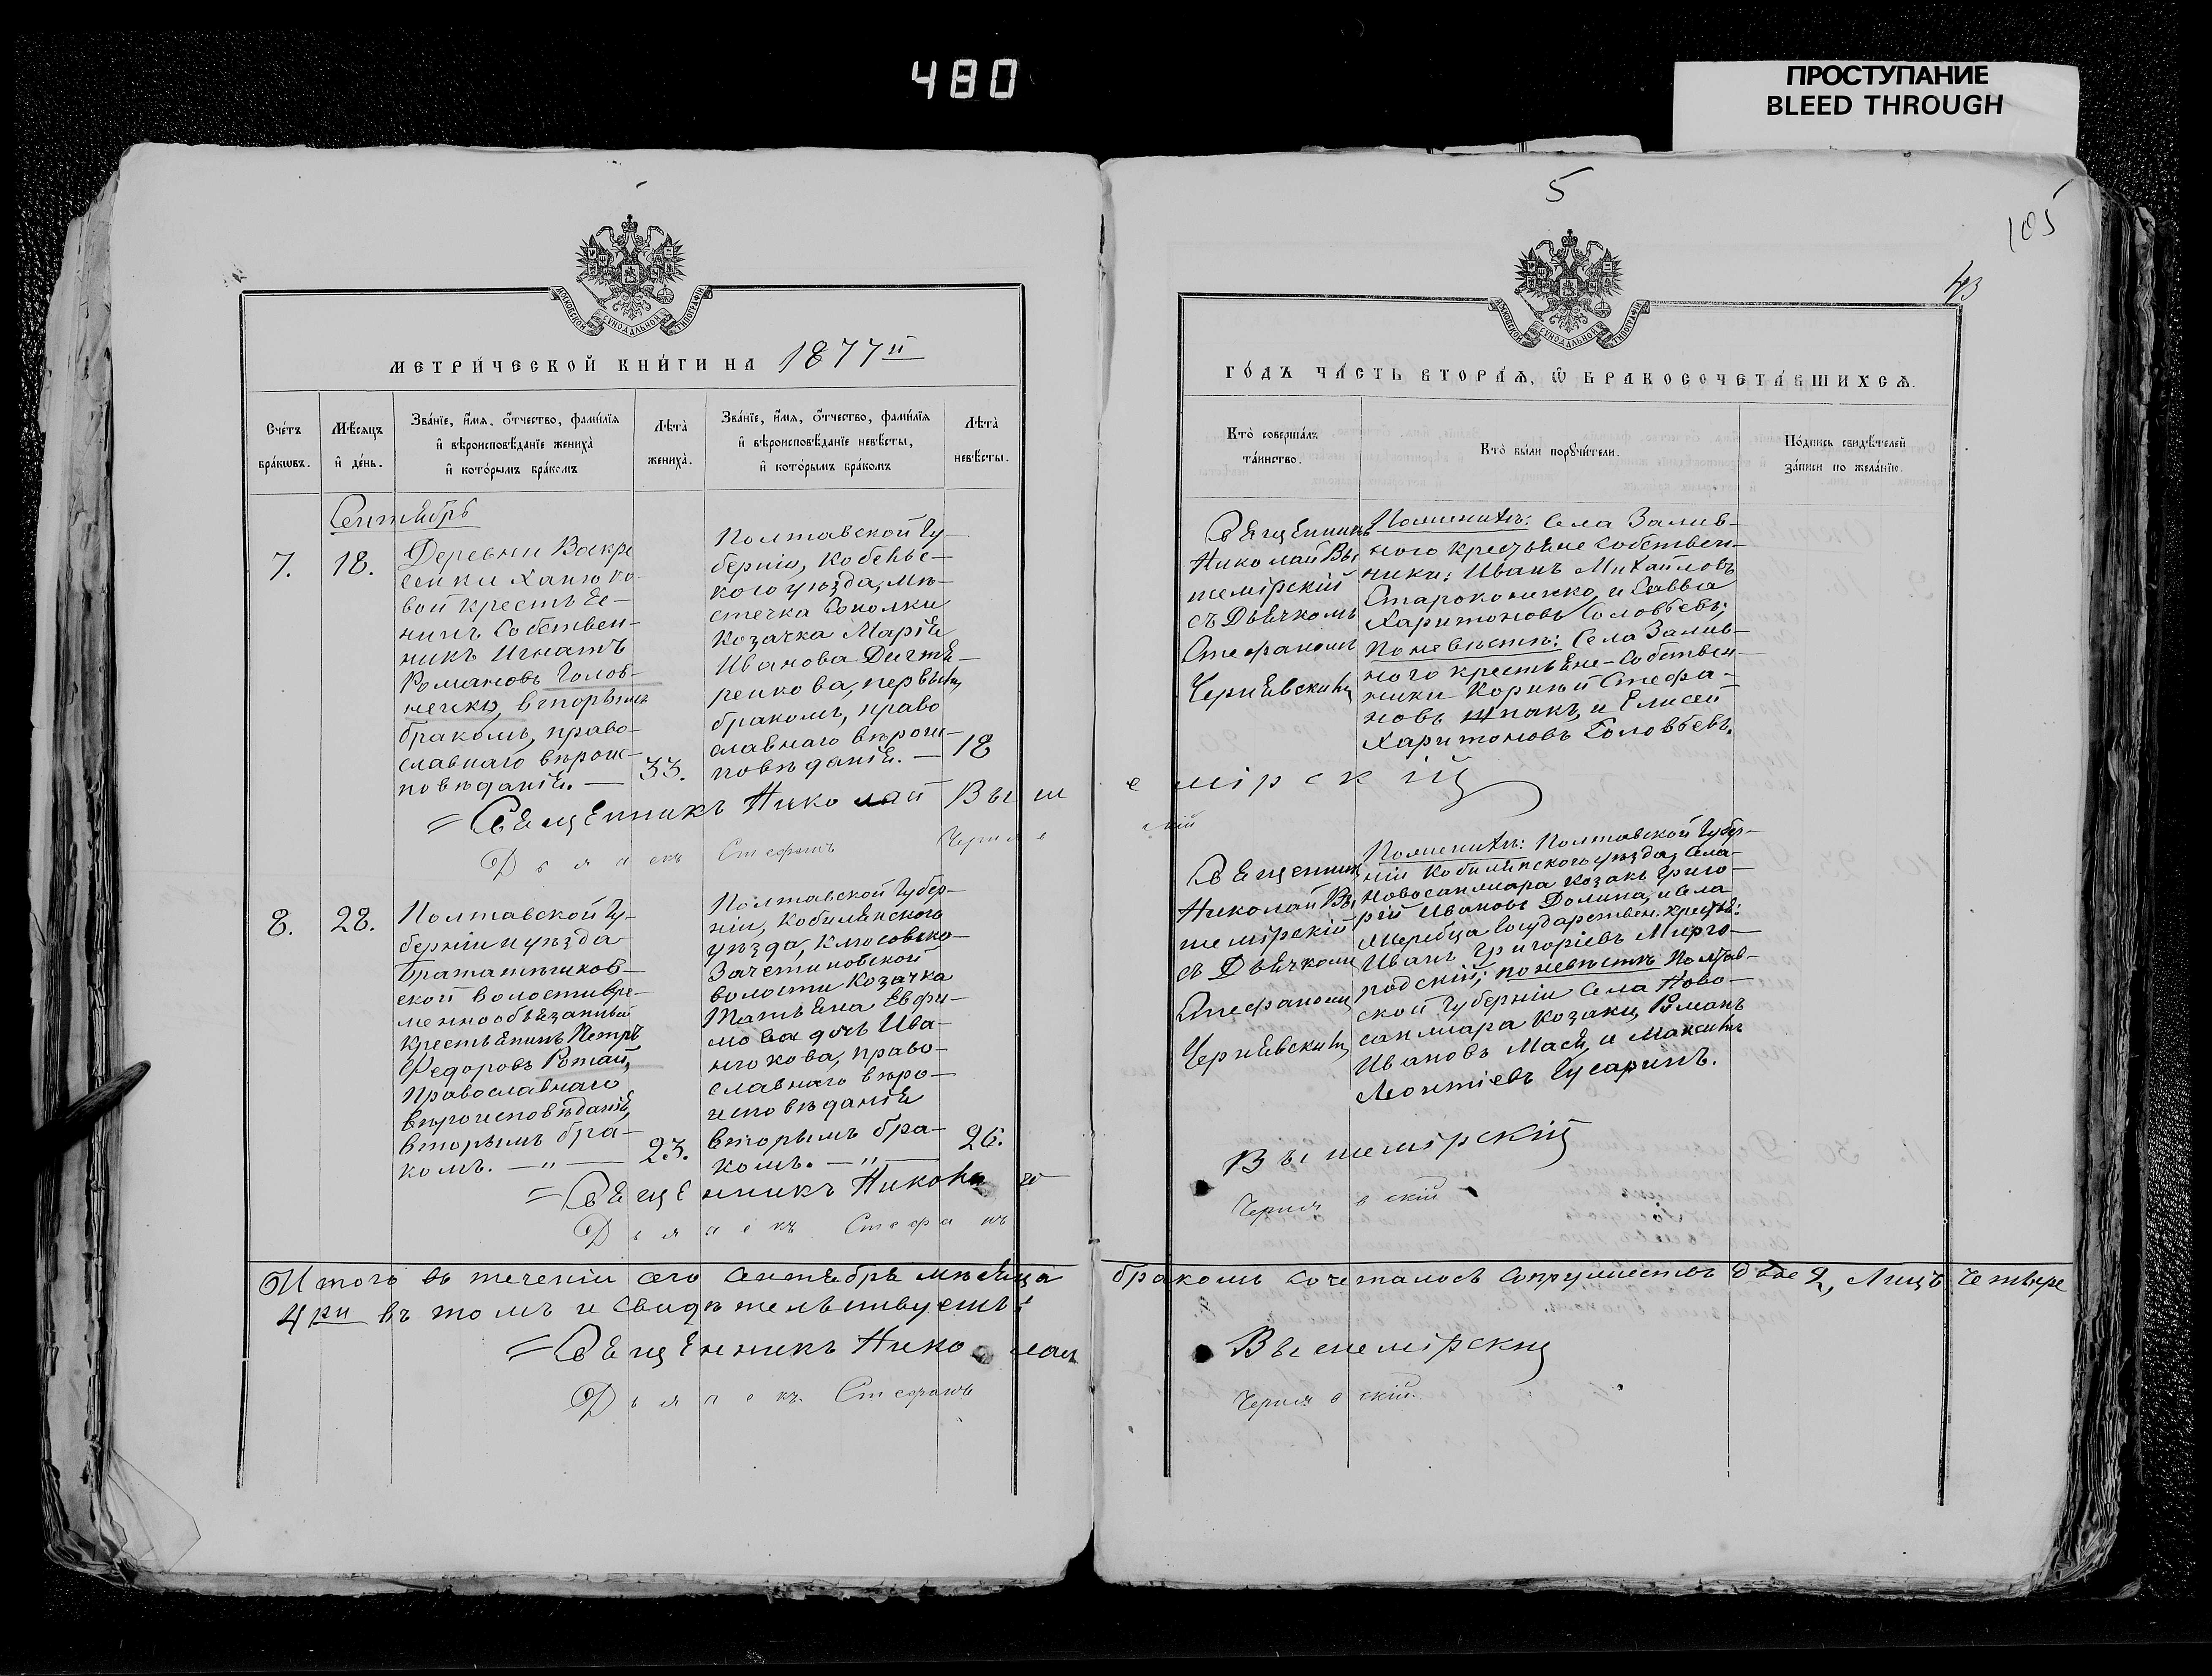 480
ПРОСТУПАНИЕ
BLEED THROUGH
5
105
43
МОСКОВСКОЙ СѴНОДАЛЬНОЙ ТИПОГРАФІИ
МОСКОВСКОЙ СѴНОДАЛЬНОЙ ТИПОГРАФІИ
МЕТРИ́ЧЕСКОЙ КНИ́ГИ НА 1877й
ГО́ДЪ ЧА́СТЬ ВТОРА́Ѧ, Ѿ БРАКОСОЧЕТА́ВШИХСѦ.
Сче́тъ бра́кωвъ.
Мѣ́сяцъ и҆ де́нь.
Зва́нїе, и҆́мя, о҆́тчество, фами́лїя и҆ вѣроисповѣ́данїе жениха̀ и҆ кото́рымъ бра́комъ
Лѣта̀ жениха̀.
Зва́нїе, и҆́мя, о҆́тчество, фами́лїя и҆ вѣроисповѣ́данїе невѣ́сты, и҆ кото́рымъ бра́комъ
Лѣта̀ невѣ́сты.
Кто̀ соверша́лъ та́инство.
Кто̀ бы́ли порꙋчи́тели.
По́дпись свидѣ́телей за́писи по жела́нїю.
Сентябрь
7.
18.
Деревни Вакре
сенки Ханюко-
вой крестья-
нинъ собствен-
никъ Игнатъ
Романовъ Голов-
ненко, вторымъ
бракомъ, право-
славнаго вѣроис-
повѣданія.—
33.
Полтавской Гу-
берніи, Кобеляс-
кого уѣзда, мѣ-
стечка Соколки
Козачка Марія
Иванова Дигтя-
ренкова, первымъ
бракомъ, право
славнаго вѣроис-
повѣданія.—
18
Священникъ
Николай Вы
шемірскій
съ Дьячкомъ
Стефаномъ
Чернявскимъ
По женихѣ: села Залив-
ного крестьяне собствен-
ники: Иванъ Михайловъ
Староконенко, и Савва
Харитоновъ Соловьевъ;
По невѣстѣ: Села Залив-
ного крестьяне-собствен-
ники Корнѣй Стефа-
новъ Шпакъ, и Елисей
Харитоновъ Соловьевъ.
=Священникъ Николай Вышемірскій
Дьячекъ Стефанъ Чернявскій
8.
28.
Полтавской Гу-
берніи и уѣзда
Браташковск
ской волости Вре-
меннообязанный
крестьянинъ Петръ
Федоровъ Ротай,
Православнаго
вѣроисповѣданія,
вторымъ бра-
комъ.—"—
23.
Полтавской Губер-
ніи, Кобелякского
уѣзда,
волости Козачка
Татьяна Евфи-
мова дочь Ива-
нюкова, право-
славнаго вѣро-
исповѣданія
вторымъ бра-
комъ.—"—
26.
Священник
Николай Вы
шемірскій
съ Дьячкомъ
Стефаномъ
Чернявскимъ
По женихѣ: Полтавской Губер-
ніи Кобелякского уѣзда, села-
Новосанжара Козакъ Григо-
рій Ивановъ Долина, и села
Жеребца Государствен. крестья:
Иванъ Григоріевъ Мирго-
родскій; по невѣстѣ Полтав-
ской Губерніи Села Ново-
санжара Козаки, Романъ
Ивановъ Масій, и Максимъ
Леонтіевъ Гусаринъ.
=Священникъ Николай Вышемірскій
Дьячекъ Стефанъ Чернявскій
Итого въ теченіи сего Сентября мѣсяца бракомъ сочеталось супружествъ двое 2, Лицъ четверо
4ри въ томъ и свидѣтельствуемъ:
=Священникъ Николай Вышемірскій
Дьячекъ Стефанъ Чернявскій